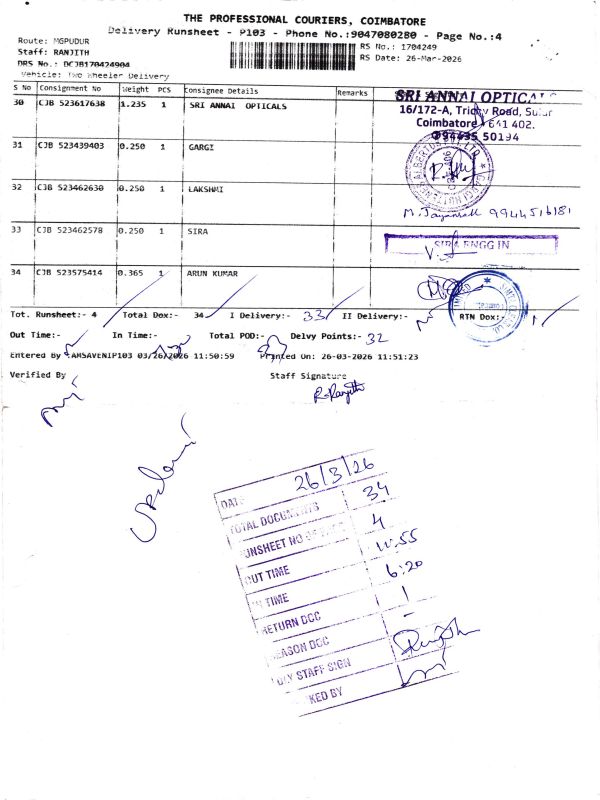 THE PROFESSIONAL COURIERS, COIMBATORE
Delivery Runsheet - P103 - Phone No.:9047080280 - Page No.:4
Route: MGPUDUR
RS No.: 1704249
Staff: RANJITH
RS Date: 26-Mar-2026
DRS No.: DCJB170424904
Vehicle: Two Wheeler Delivery
S No Consignment No Weight PCS Consignee Details Remarks
30 CJB 523617638 1.235 1 SRI ANNAI OPTICALS
SRI ANNAI OPTICALS
16/172-A, Trichy Road, Sulur
Coimbatore 641 402.
✆94435 50194
31 CJB 523439403 0.250 1 GARGI
32 CJB 523462630 0.250 1 LAKSHMI
9944516181
33 CJB 523462578 0.250 1 SIRA
SIRA ENGG IN
34 CJB 523575414 0.365 1 ARUN KUMAR
Tot. Runsheet:- 4 Total Dox:- 34 I Delivery:- 33 II Delivery:- RTN Dox:- 1
Out Time:- In Time:- Total POD:- Delvy Points:- 32
Entered By 03/26/2026 11:50:59 Printed On: 26-03-2026 11:51:23
Verified By Staff Signature
R-Ranjith
DATE 26/3/26
TOTAL DOCUMENTS 34
RUNSHEET NO 4
OUT TIME 11:55
IN TIME 6:20
RETURN DOC 1
REASON DOC -
DLY STAFF SIGN
KED BY